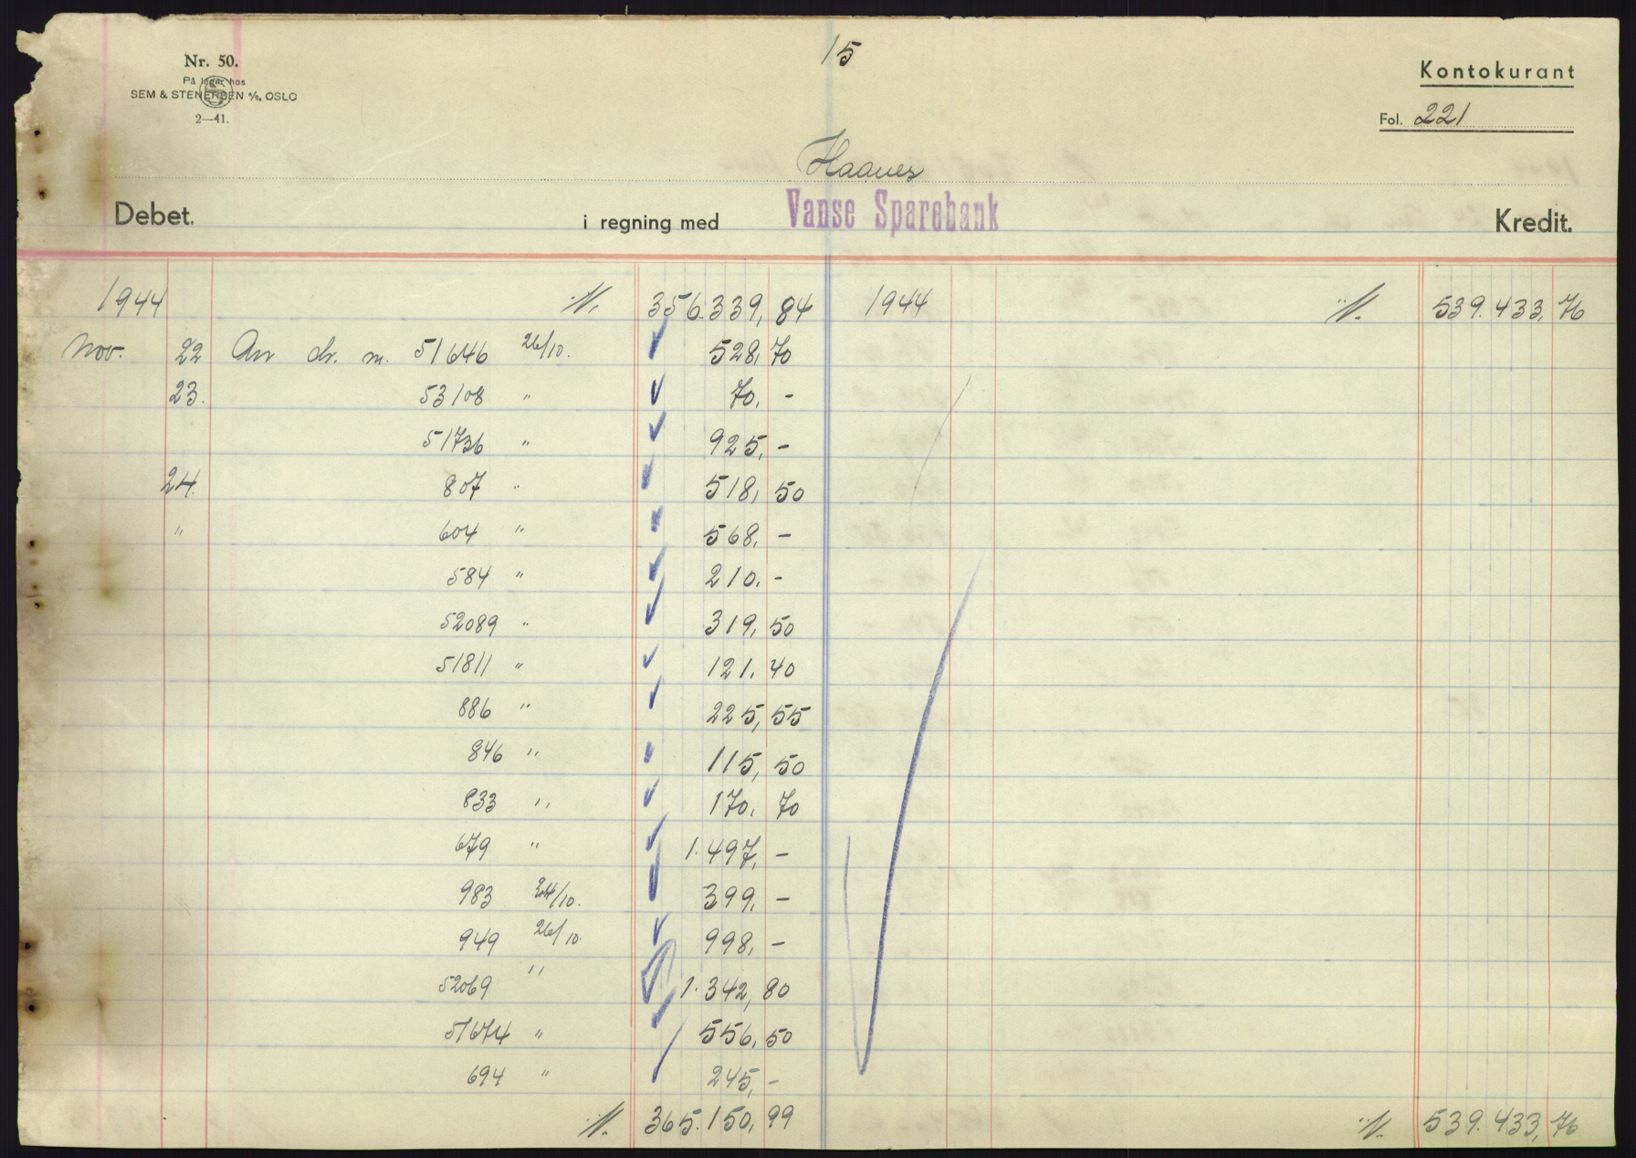 15
Nr. 50.
På lager hos
SEM & STENERSEN A/S, OSLO
2—41.
Kontokurant
Fol. 221
Haanes
Debet. i regning med Vanse Sparebank Kredit.
1944 ·/· 356.339,84 1944 ·/· 539.433,76
Nov. 22 An ch. m. 51646 26/10. 528,70
23. 53108 " 70,-
51736 " 925,-
24. 807 " 518,50
" 604 " 568,-
584 " 210.-
52089 " 319,50
51811 " 121.40
886 " 225,55
846 " 115,50
833 " 170.70
679 " 1.497,-
983 24/10. 399,-
949 26/10 998,-
52069 " 1.342,80
51674 " 556,50
694 " 245,-
·/· 365.150,99 ·/· 539.433,76